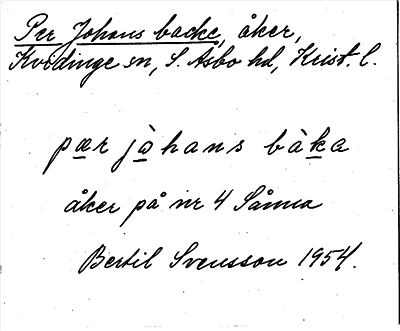 Per Johans backe, åker,
Kvidinge sn, S. Åsbo hd, Krist. l.
pær jòhans bàka
åker på nr 4 Sånna
Bertil Svensson 1954.